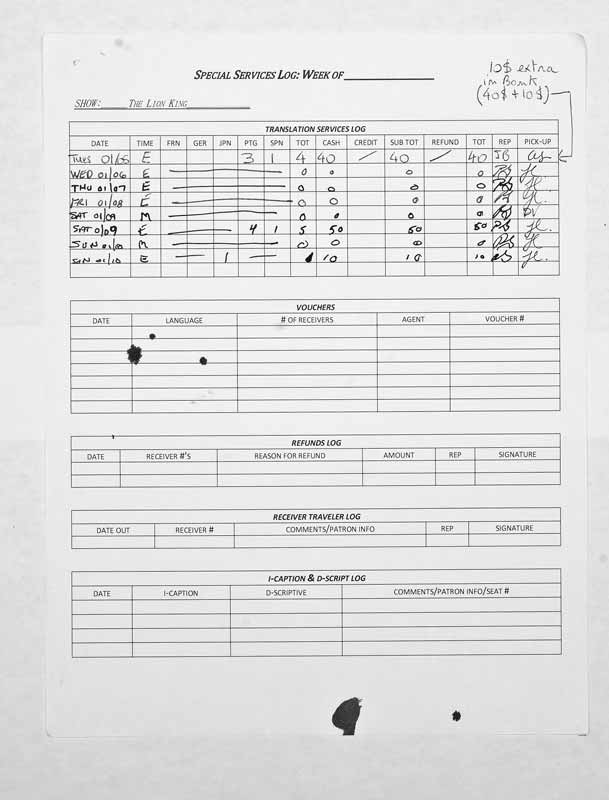 SPECIAL SERVICES LOG: WEEK OF
10$ extra
in Bank
(40$ + 10$)
SHOW: THE LION KING
TRANSLATION SERVICES LOG
DATE TIME FRN GER JPN PTG SPN TOT CASH CREDIT SUB TOT REFUND TOT REP PICK-UP
TUES 01/05 E 3 1 4 40 / 40 / 40 JB
WED 01/06 E 0 0 0 0
THU 01/07 E 0 0 0 0
FRI 01/08 E 0 0 0 0
SAT 01/09 M 0 0 0 0 DV
SAT 01/09 E 4 1 5 50 50 50
SUN 01/10 M 0 0 0 0
SUN 01/10 E 1 10 10 10
VOUCHERS
DATE LANGUAGE # OF RECEIVERS AGENT VOUCHER #
REFUNDS LOG
DATE RECEIVER #'S REASON FOR REFUND AMOUNT REP SIGNATURE
RECEIVER TRAVELER LOG
DATE OUT RECEIVER # COMMENTS/PATRON INFO REP SIGNATURE
I-CAPTION & D-SCRIPT LOG
DATE I-CAPTION D-SCRIPTIVE COMMENTS/PATRON INFO/SEAT #